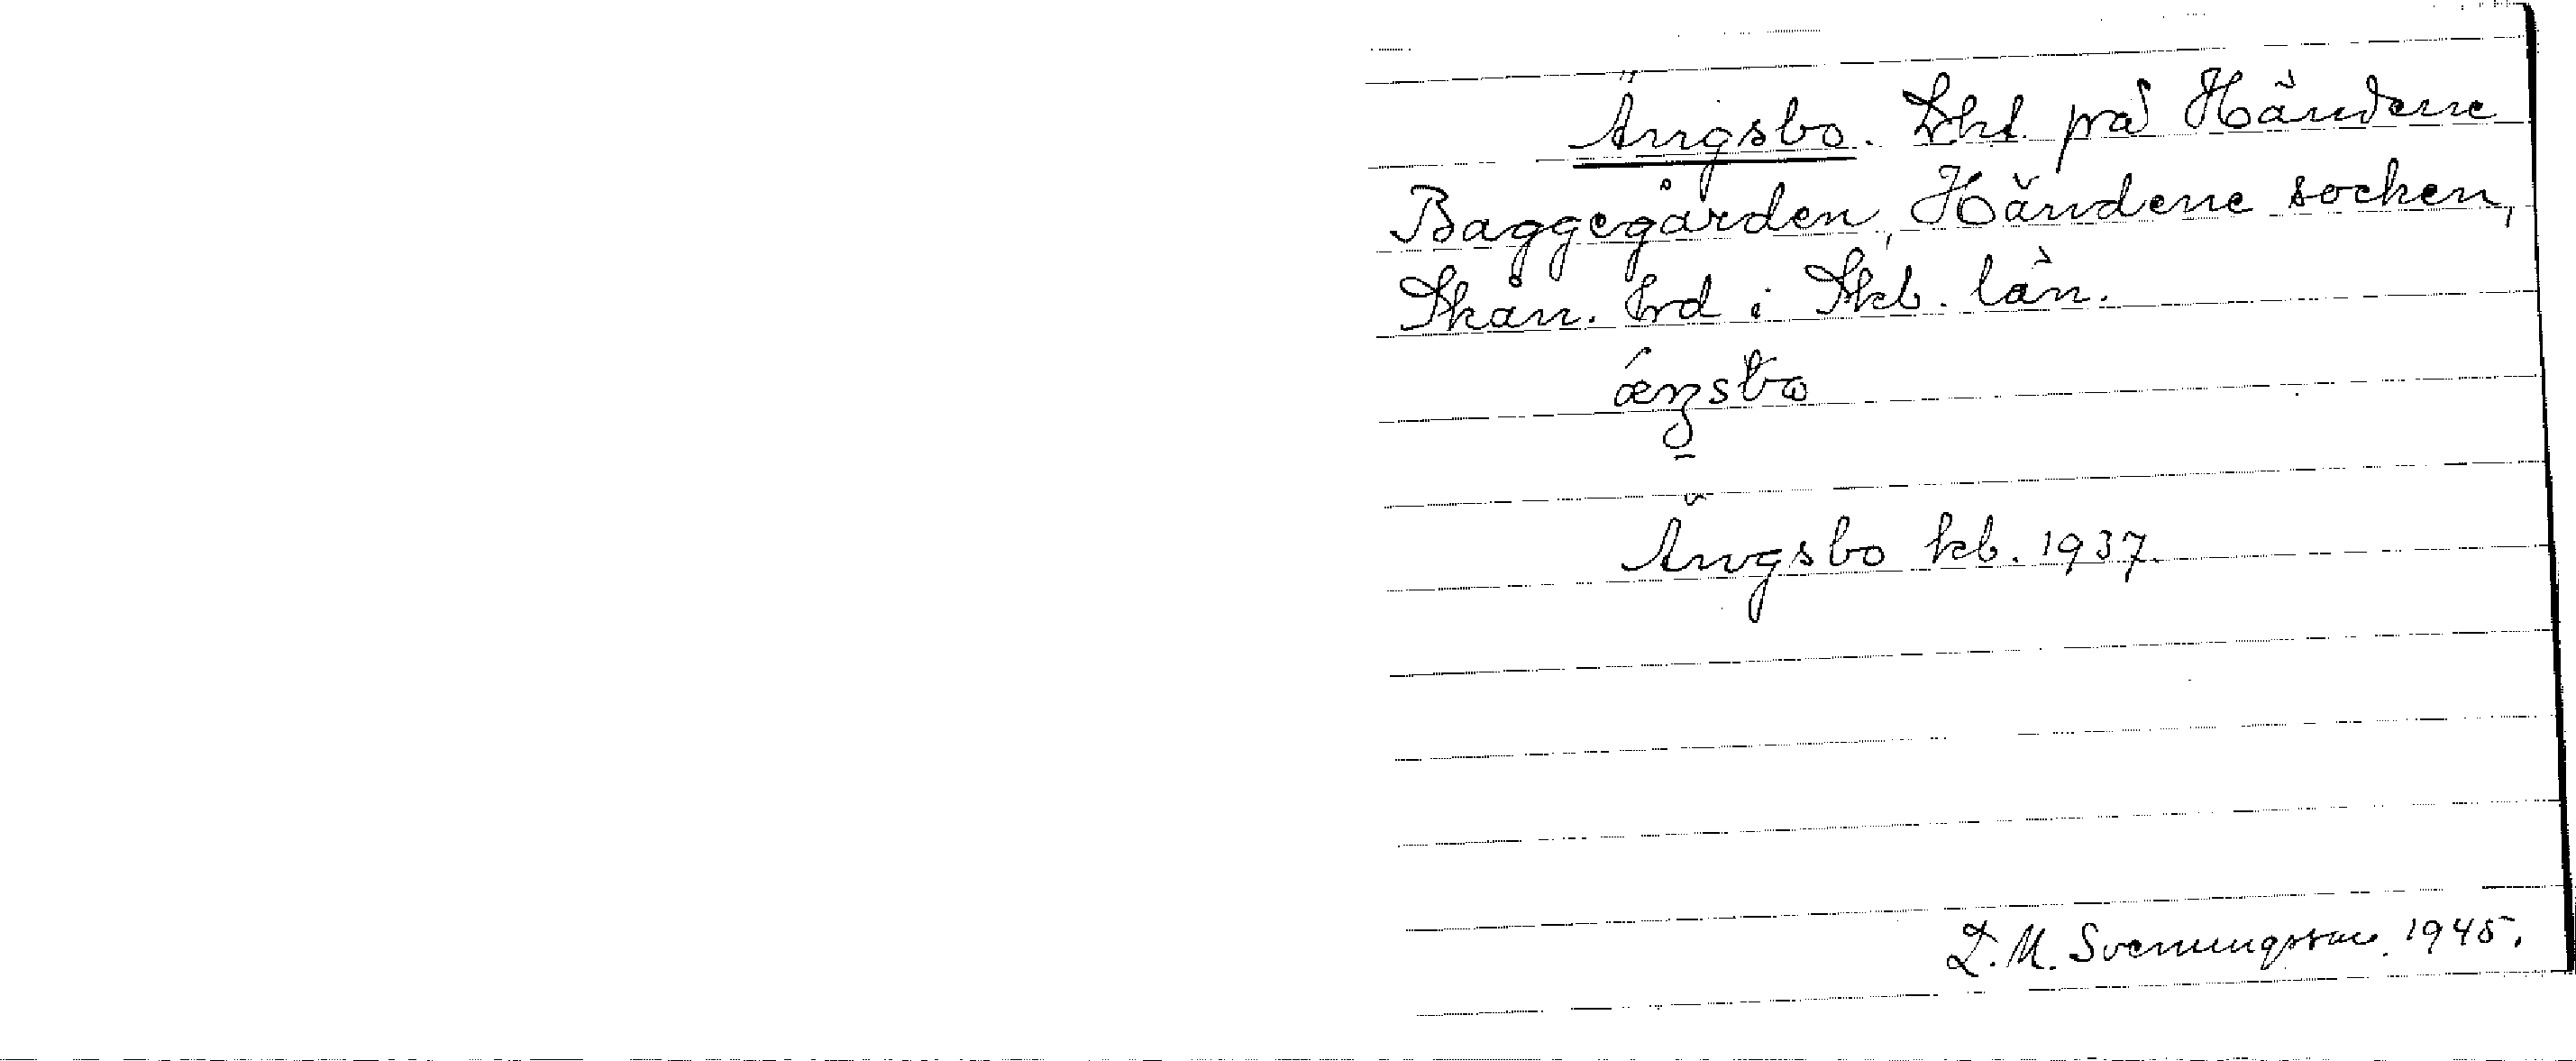 Ängsbo. Lht på Händene
Baggegården, Händene socken,
Skån. hrd i Skb. län.
ǽŋsbo
Ängsbo kb. 1937.
D. M. Svenningsson. 1945.